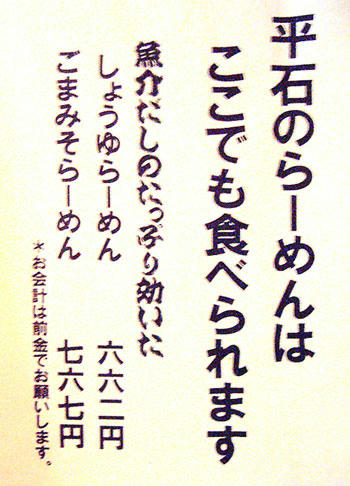 平石のらーめんは
ここでも食べられます
魚介だしのたっぷり効いた
しょうゆらーめん 六六二円
ごまみそらーめん 七六七円
*お会計は前金でお願いします。